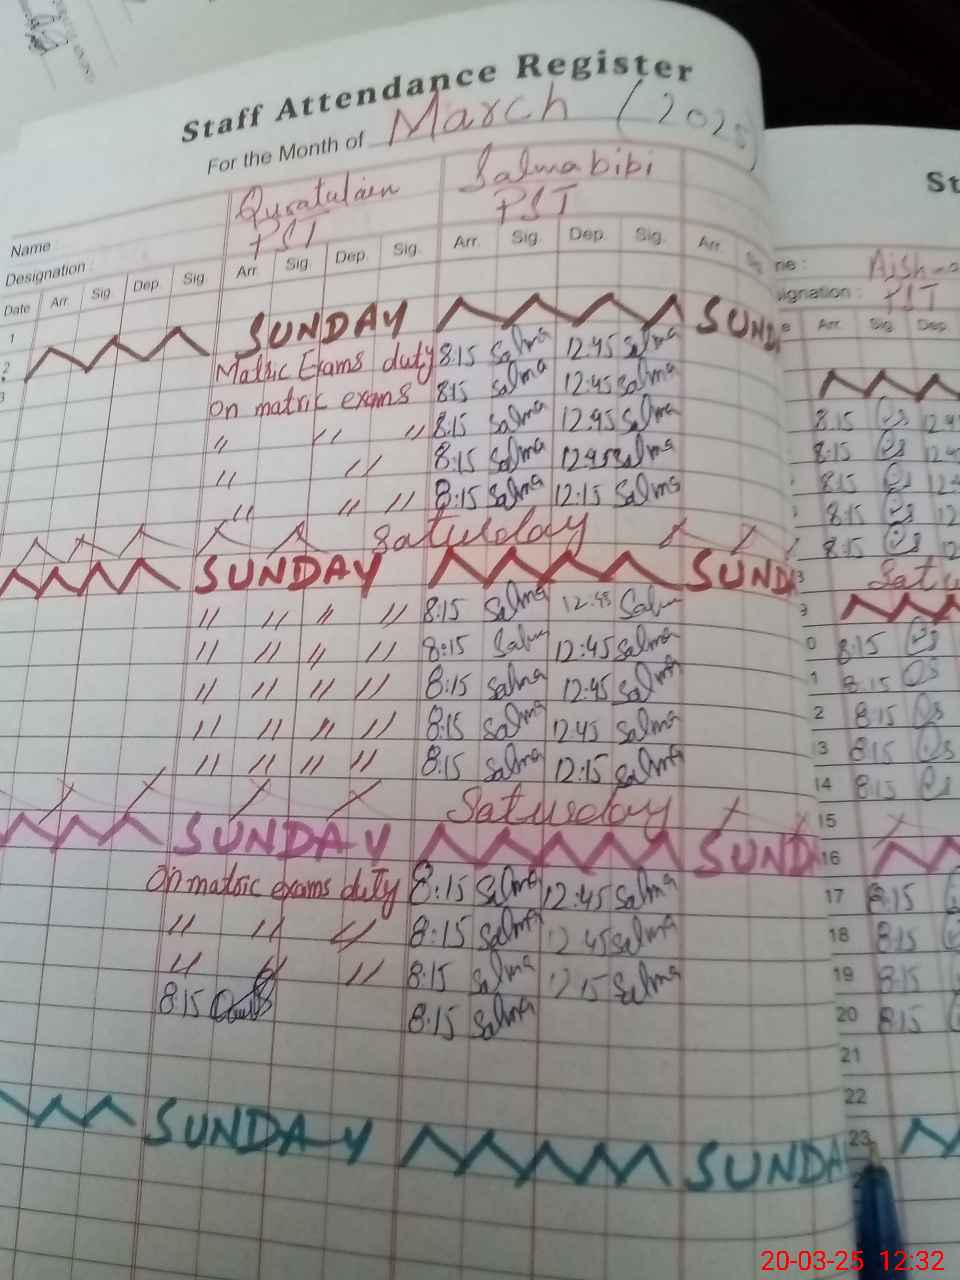 Staff Attendance Register
For the Month of March (2025)
Name : Quratulain Salma bibi
Designation : PST PST
Date Arr. Sig. Dep. Sig. Arr. Sig. Dep. Sig. Arr. Sig. Dep. Sig. Arr.
1
2 SUNDAY SUND
3 Matric Exams duty 8:15 Salma 12:45 Salma
on matric exams 8:15 Salma 12:45 Salma
" " " 8:15 Salma 12:45 Salma
" " 8:15 Salma 12:45 Salma
" " " 8:15 Salma 12:15 Salma
Saturday
SUNDAY SUND
" " " " 8:15 Salma 12:45 Salma
" " " " 8:15 Salma 12:45 Salma
" " " " 8:15 Salma 12:45 Salma
" " " " 8:15 Salma 12:45 Salma
" " " " 8:15 Salma 12:15 Salma
Saturday
SUNDAY SUND
On matric exams duty 8:15 Salma 12:45 Salma
" " " 8:15 Salma 12:45 Salma
" " " 8:15 Salma 12:15 Salma
8:15 8:15 Salma
SUNDAY SUNDA
St
me :
signation : PST
Arr. Sig. Dep.
8:15
8:15
8:15
8:15
8:15
Satu
0 8:15
1 8:15
2 8:15
13 8:15
14 8:15
15
16
17 8:15
18 8:15
19 8:15
20 8:15
21
22
23
20-03-25 12:32